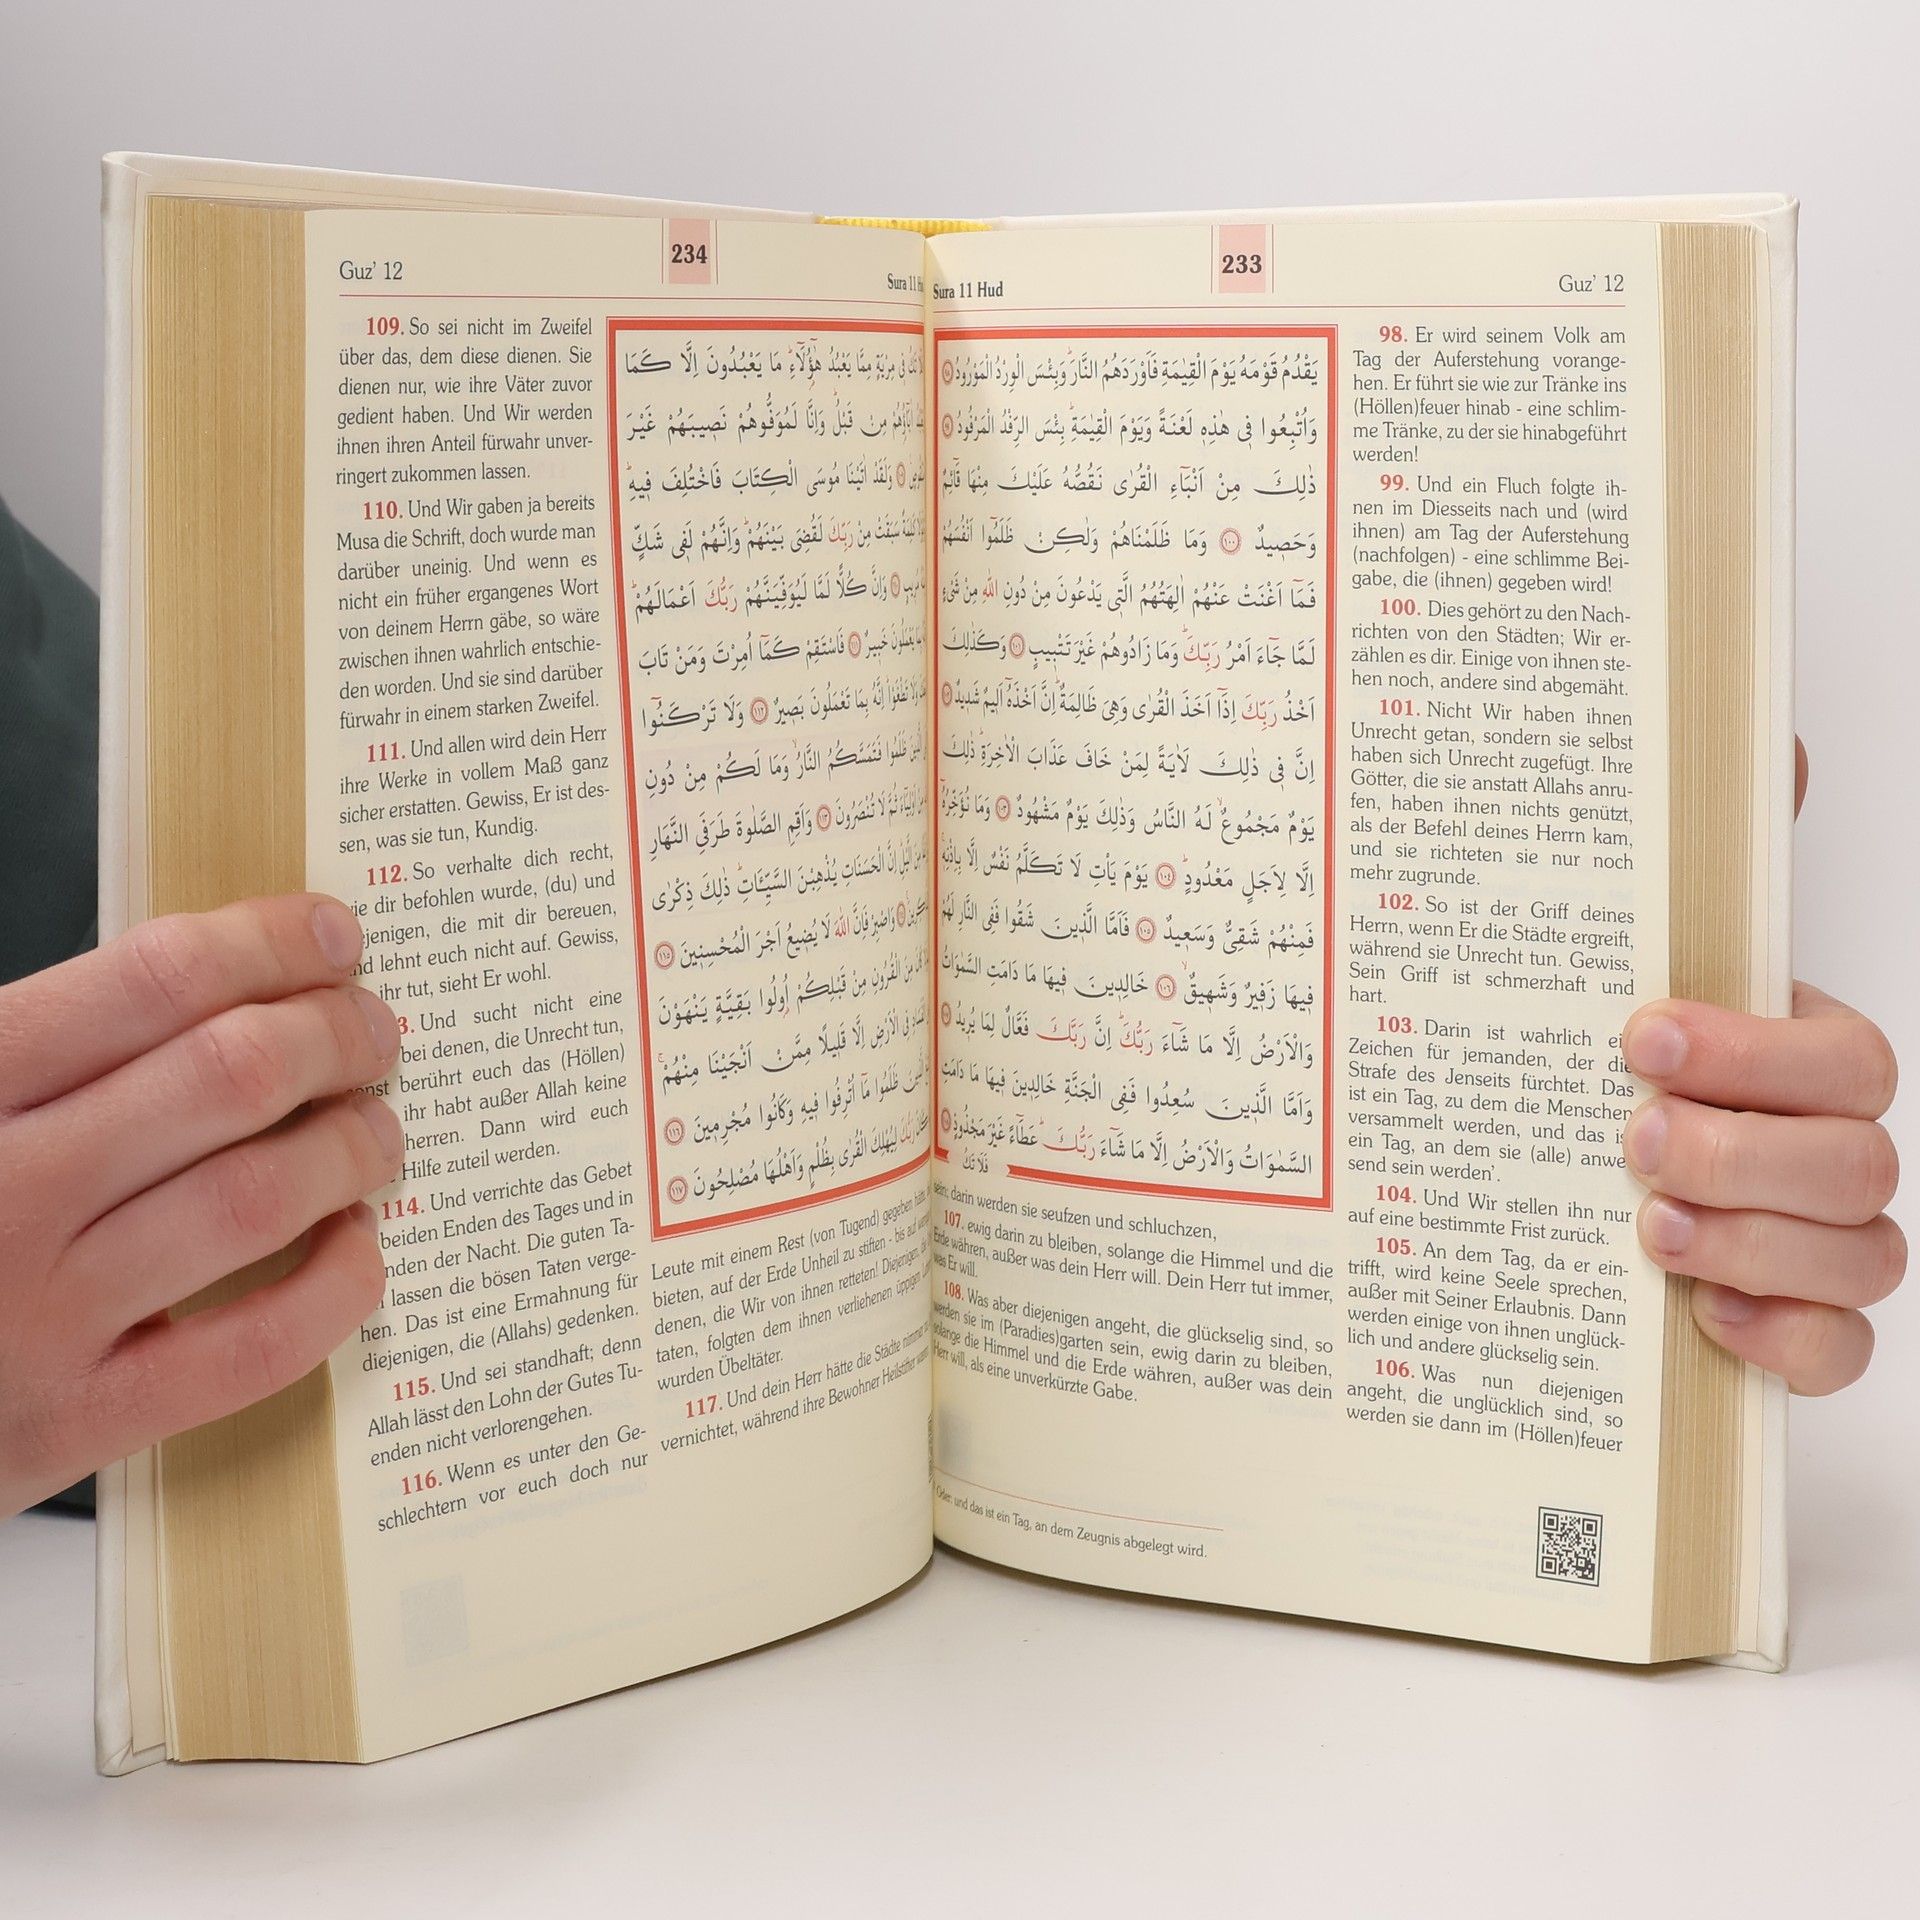 Sura 11 Hud
233
Guz' 12
98. Er wird seinem Volk am
Tag der Auferstehung vorange-
hen. Er führt sie wie zur Tränke ins
(Höllen)feuer hinab - eine schlim-
me Tränke, zu der sie hinabgeführt
werden!
99. Und ein Fluch folgte ih-
nen im Diesseits nach und (wird
ihnen) am Tag der Auferstehung
(nachfolgen) - eine schlimme Bei-
gabe, die (ihnen) gegeben wird!
100. Dies gehört zu den Nach-
richten von den Städten; Wir er-
zählen es dir. Einige von ihnen ste-
hen noch, andere sind abgemäht.
101. Nicht Wir haben ihnen
Unrecht getan, sondern sie selbst
haben sich Unrecht zugefügt. Ihre
Götter, die sie anstatt Allahs anru-
fen, haben ihnen nichts genützt,
als der Befehl deines Herrn kam,
und sie richteten sie nur noch
mehr zugrunde.
102. So ist der Griff deines
Herrn, wenn Er die Städte ergreift,
während sie Unrecht tun. Gewiss,
Sein Griff ist schmerzhaft und
hart.
103. Darin ist wahrlich ein
Zeichen für jemanden, der die
Strafe des Jenseits fürchtet. Das
ist ein Tag, zu dem die Menschen
versammelt werden, und das is
ein Tag, an dem sie (alle) anwe
send sein werden'.
104. Und Wir stellen ihn nur
auf eine bestimmte Frist zurück.
105. An dem Tag, da er ein-
trifft, wird keine Seele sprechen,
außer mit Seiner Erlaubnis. Dann
werden einige von ihnen unglück-
lich und andere glückselig sein.
106. Was nun diejenigen
angeht, die unglücklich sind, so
werden sie dann im (Höllen)feuer
يَقْدُمُ قَوْمَهُ يَوْمَ الْقِيٰمَةِ فَاَوْرَدَهُمُ النَّارَ وَبِئْسَ الْوِرْدُ الْمَوْرُودُ ٩٨
وَاُتْبِعُوا فِى هٰذِهِ لَعْنَةً وَيَوْمَ الْقِيٰمَةِ بِئْسَ الرِّفْدُ الْمَرْفُودُ ٩٩
ذٰلِكَ مِنْ اَنْبَاءِ الْقُرٰى نَقُصُّهُ عَلَيْكَ مِنْهَا قَائِمٌ
وَحَصِيدٌ ١٠٠ وَمَا ظَلَمْنَاهُمْ وَلٰكِنْ ظَلَمُوا اَنْفُسَهُمْ
فَمَا اَغْنَتْ عَنْهُمْ اٰلِهَتُهُمُ الَّتِى يَدْعُونَ مِنْ دُونِ اللّٰهِ مِنْ شَىْءٍ
لَمَّا جَاءَ اَمْرُ رَبِّكَ وَمَا زَادُوهُمْ غَيْرَ تَتْبِيبٍ ١٠١ وَكَذٰلِكَ
اَخْذُ رَبِّكَ اِذَا اَخَذَ الْقُرٰى وَهِىَ ظَالِمَةٌ اِنَّ اَخْذَهُ اَلِيمٌ شَدِيدٌ ١٠٢
اِنَّ فِى ذٰلِكَ لَاٰيَةً لِمَنْ خَافَ عَذَابَ الْاٰخِرَةِ ذٰلِكَ
يَوْمٌ مَجْمُوعٌ لَهُ النَّاسُ وَذٰلِكَ يَوْمٌ مَشْهُودٌ ١٠٣ وَمَا نُؤَخِّرُهُ
اِلَّا لِاَجَلٍ مَعْدُودٍ ١٠٤ يَوْمَ يَاْتِ لَا تَكَلَّمُ نَفْسٌ اِلَّا بِاِذْنِهِ
فَمِنْهُمْ شَقِىٌّ وَسَعِيدٌ ١٠٥ فَاَمَّا الَّذِينَ شَقُوا فَفِى النَّارِ لَهُمْ
فِيهَا زَفِيرٌ وَشَهِيقٌ ١٠٦ خَالِدِينَ فِيهَا مَا دَامَتِ السَّمٰوَاتُ
وَالْاَرْضُ اِلَّا مَا شَاءَ رَبُّكَ اِنَّ رَبَّكَ فَعَّالٌ لِمَا يُرِيدُ ١٠٧
وَاَمَّا الَّذِينَ سُعِدُوا فَفِى الْجَنَّةِ خَالِدِينَ فِيهَا مَا دَامَتِ
السَّمٰوَاتُ وَالْاَرْضُ اِلَّا مَا شَاءَ رَبُّكَ عَطَاءً غَيْرَ مَجْذُوذٍ ١٠٨
فَلَا تَكُ
sein; darin werden sie seufzen und schluchzen,
107. ewig darin zu bleiben, solange die Himmel und die
Erde währen, außer was dein Herr will. Dein Herr tut immer,
was Er will.
108. Was aber diejenigen angeht, die glückselig sind, so
werden sie im (Paradies)garten sein, ewig darin zu bleiben,
solange die Himmel und die Erde währen, außer was dein
Herr will, als eine unverkürzte Gabe.
Oder: und das ist ein Tag, an dem Zeugnis abgelegt wird.
Guz' 12
234
Sura 11
109. So sei nicht im Zweifel
über das, dem diese dienen. Sie
dienen nur, wie ihre Väter zuvor
gedient haben. Und Wir werden
ihnen ihren Anteil fürwahr unver-
ringert zukommen lassen.
110. Und Wir gaben ja bereits
Musa die Schrift, doch wurde man
darüber uneinig. Und wenn es
nicht ein früher ergangenes Wort
von deinem Herrn gäbe, so wäre
zwischen ihnen wahrlich entschie-
den worden. Und sie sind darüber
fürwahr in einem starken Zweifel.
111. Und allen wird dein Herr
ihre Werke in vollem Maß ganz
sicher erstatten. Gewiss, Er ist des-
sen, was sie tun, Kundig.
112. So verhalte dich recht,
wie dir befohlen wurde, (du) und
ejenigen, die mit dir bereuen,
nd lehnt euch nicht auf. Gewiss,
ihr tut, sieht Er wohl.
3. Und sucht nicht eine
bei denen, die Unrecht tun,
onst berührt euch das (Höllen)
ihr habt außer Allah keine
herren. Dann wird euch
Hilfe zuteil werden.
114. Und verrichte das Gebet
beiden Enden des Tages und in
nden der Nacht. Die guten Ta-
lassen die bösen Taten verge-
hen. Das ist eine Ermahnung für
diejenigen, die (Allahs) gedenken.
115. Und sei standhaft; denn
Allah lässt den Lohn der Gutes Tu-
enden nicht verlorengehen.
116. Wenn es unter den Ge-
schlechtern vor euch doch nur
فِى مِرْيَةٍ مِمَّا يَعْبُدُ هٰؤُلَاءِ مَا يَعْبُدُونَ اِلَّا كَمَا
اٰبَاؤُهُمْ مِنْ قَبْلُ وَاِنَّا لَمُوَفُّوهُمْ نَصِيبَهُمْ غَيْرَ
وَلَقَدْ اٰتَيْنَا مُوسَى الْكِتَابَ فَاخْتُلِفَ فِيهِ
سَبَقَتْ مِنْ رَبِّكَ لَقُضِىَ بَيْنَهُمْ وَاِنَّهُمْ لَفِى شَكٍّ
وَاِنَّ كُلًّا لَمَّا لَيُوَفِّيَنَّهُمْ رَبُّكَ اَعْمَالَهُمْ
يَعْمَلُونَ خَبِيرٌ ١١١ فَاسْتَقِمْ كَمَا اُمِرْتَ وَمَنْ تَابَ
وَلَا تَطْغَوْا اِنَّهُ بِمَا تَعْمَلُونَ بَصِيرٌ ١١٢ وَلَا تَرْكَنُوا
ظَلَمُوا فَتَمَسَّكُمُ النَّارُ وَمَا لَكُمْ مِنْ دُونِ
اَوْلِيَاءَ ثُمَّ لَا تُنْصَرُونَ ١١٣ وَاَقِمِ الصَّلٰوةَ طَرَفَىِ النَّهَارِ
مِنَ الَّيْلِ اِنَّ الْحَسَنَاتِ يُذْهِبْنَ السَّيِّئَاتِ ذٰلِكَ ذِكْرٰى
وَاصْبِرْ فَاِنَّ اللّٰهَ لَا يُضِيعُ اَجْرَ الْمُحْسِنِينَ ١١٥
مِنَ الْقُرُونِ مِنْ قَبْلِكُمْ اُولُوا بَقِيَّةٍ يَنْهَوْنَ
فِى الْاَرْضِ اِلَّا قَلِيلًا مِمَّنْ اَنْجَيْنَا مِنْهُمْ
ظَلَمُوا مَا اُتْرِفُوا فِيهِ وَكَانُوا مُجْرِمِينَ ١١٦
رَبُّكَ لِيُهْلِكَ الْقُرٰى بِظُلْمٍ وَاَهْلُهَا مُصْلِحُونَ ١١٧
Leute mit einem Rest (von Tugend) gegeben hätte,
bieten, auf der Erde Unheil zu stiften - bis auf
denen, die Wir von ihnen retteten! Diejenigen,
taten, folgten dem ihnen verliehenen üppigen
wurden Übeltäter.
117. Und dein Herr hätte die Städte nimmer
vernichtet, während ihre Bewohner Heilstifter